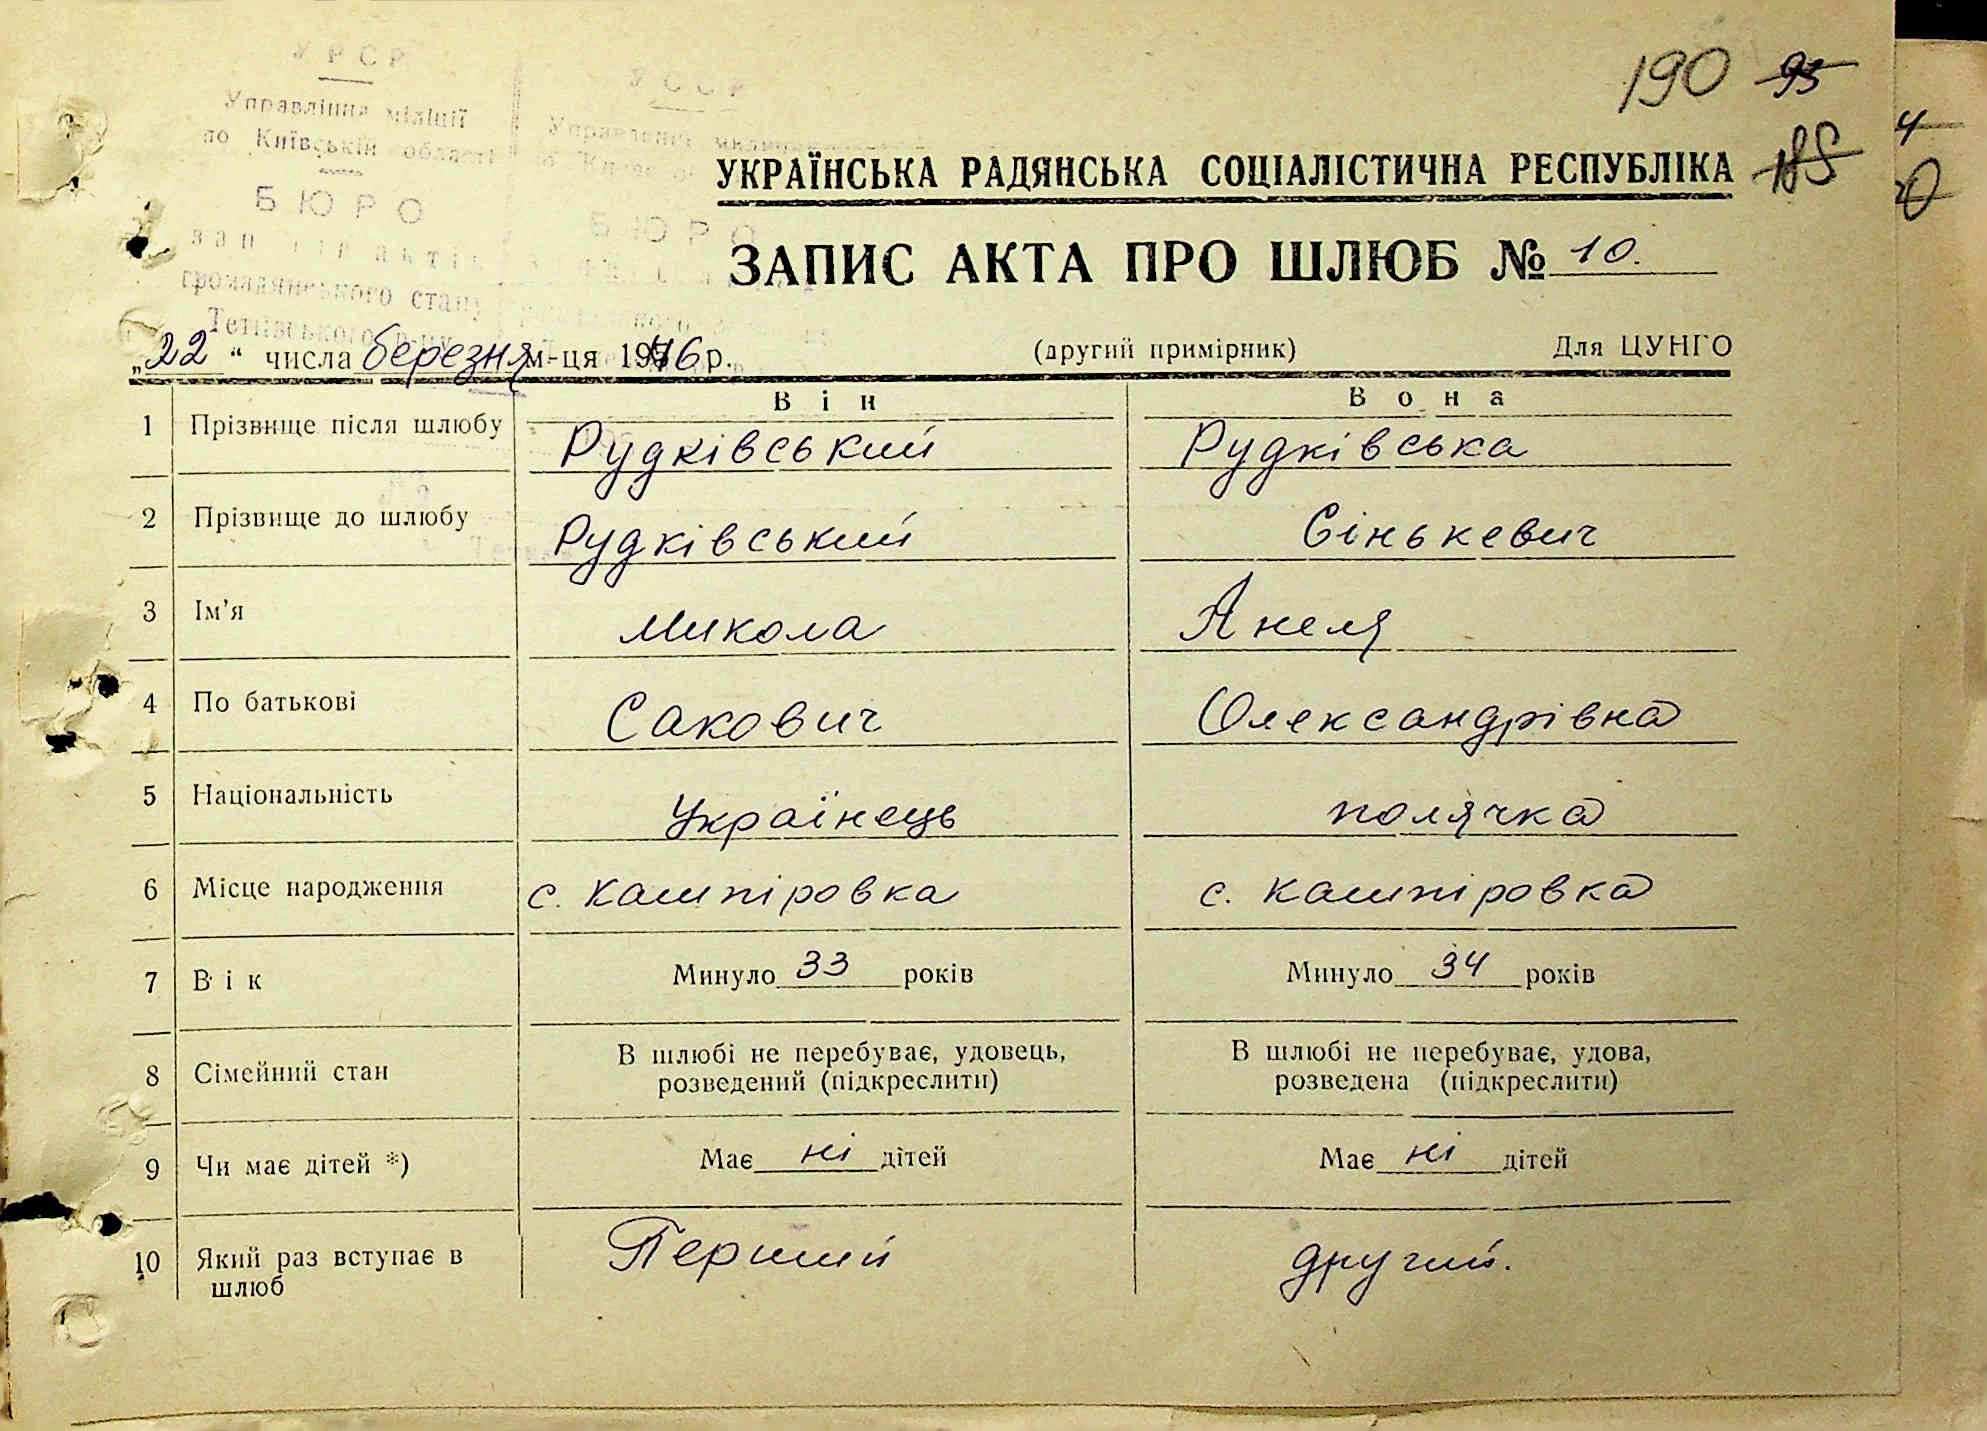 190 95
185
УРСР
Управління міліції
по Київській області
БЮРО
громадянського стану
УССР
БЮРО
УКРАЇНСЬКА РАДЯНСЬКА СОЦІАЛІСТИЧНА РЕСПУБЛІКА
ЗАПИС АКТА ПРО ШЛЮБ № 10.
„22“ числа березня м-ця 1946 р. (другий примірник) Для ЦУНГО
Він Вона
1 Прізвище після шлюбу Рудківський Рудківська
2 Прізвище до шлюбу Рудківський Сінькевич
3 Ім’я Микола Анеля
4 По батькові Сакович Олександрівна
5 Національність Українець полячка
6 Місце народження с. Кашпіровка с. Кашпіровка
7 Вік Минуло 33 років Минуло 34 років
8 Сімейний стан В шлюбі не перебуває, удовець, В шлюбі не перебуває, удова,
розведений (підкреслити) розведена (підкреслити)
9 Чи має дітей *) Має ні дітей Має ні дітей
10 Який раз вступає в Перший другий.
шлюб